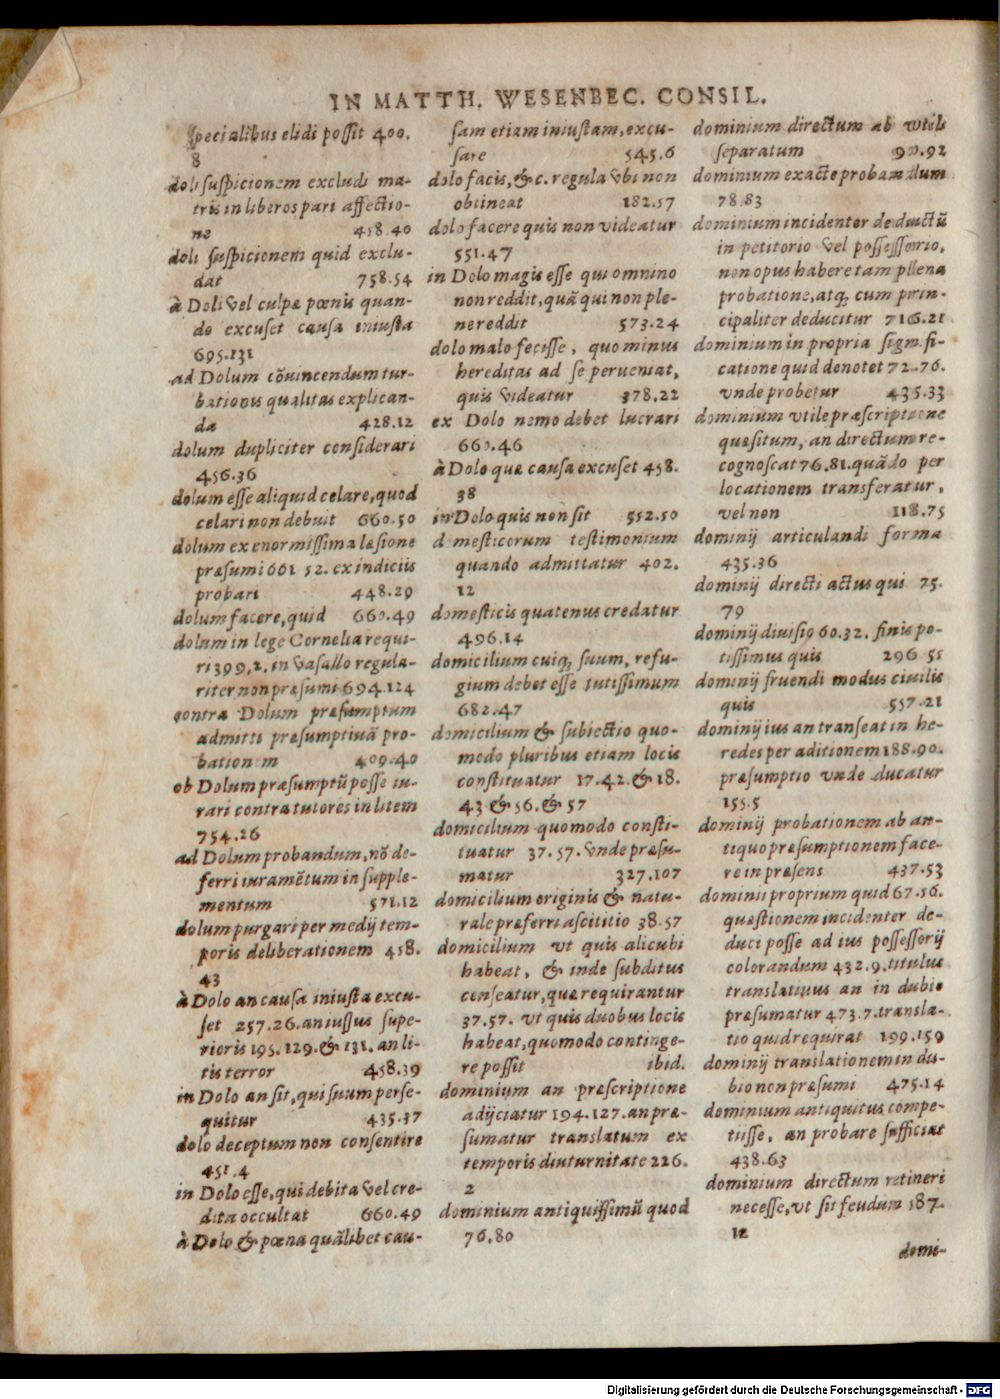 IN MATTH. WESENBEC. CONSIL.
specialibus elidi possit 400.
8
doli suspicionem excludi ma-
tris in liberos pari affectio-
ne 458.40
doli suspicionem quid exclu-
dat 758.54
à Doli vel culpæ pœnis quan-
do excuset causa iniusta
695.131
ad Dolum cõuincendum tur-
bationis qualitas explican-
da 428.12
dolum dupliciter considerari
456.36
dolum esse aliquid celare, quod
celari non debuit 660.50
dolum ex enormissima læsione
præsumi 661 52. ex indiciis
probari 448.29
dolum facere, quid 660.49
dolum in lege Cornelia requi-
ri 399,2. in vasallo regula-
riter non præsumi 694.124
contra Dolum præsumptum
admitti præsumptiuã pro-
bation m 409.40
ob Dolum præsumptũ posse iu-
rari contra tutores in litem
754.26
ad Dolum probandum, nõ de-
ferri iuramẽtum in supple-
mentum 571.12
dolum purgari per medij tem-
poris deliberationem 458.
43
à Dolo an causa iniusta excu-
set 257.26. an iussus supe-
rioris 195. 129. & 131. an li-
tis terror 458.39
in Dolo an sit, qui suum perse-
quitur 435.37
dolo deceptum non consentire
451.4
in Dolo esse, qui debita vel cre-
dita occultat 660.49
à Dolo & pœna quãlibet cau-
sam etiam iniustam, excu-
sare 545.6
dolo facis, &c. regula vbi non
obtineat 182.57
dolo facere quis non videatur
551.47
in Dolo magis esse qui omnino
non reddit, quã qui non ple-
ne reddit 573.24
dolo malo fecisse, quo minus
hereditas ad se perueniat,
quis videatur 378.22
ex Dolo nemo debet lucrari
660.46
à Dolo quæ causa excuset 458.
38
in Dolo quis non sit 552.50
d mesticorum testimonium
quando admittatur 402.
12
domesticis quatenus credatur
496.14
domicilium cuiq; suum, refu-
gium debet esse tutissimum
682.47
domicilium & subiectio quo-
modo pluribus etiam locis
constituatur 17.42. & 18.
43 & 56. & 57
domicilium quomodo consti-
tuatur 37.57. vnde præsu-
matur 327.107
domicilium originis & natu-
rale præferri ascititio 38.57
domicilium vt quis alicubi
habeat, & inde subditus
censeatur, quæ requirantur
37.57. vt quis duobus locis
habeat, quomodo continge-
re possit ibid.
dominium an præscriptione
adijciatur 194.127. an præ-
sumatur translatum ex
temporis diuturnitate 226.
2
dominium antiquissimũ quod
76.80
dominium directum ab vtili
separatum 90.92
dominium exacte probandum
78.83
dominium incidenter deductũ
in petitorio vel possessorio,
non opus habere tam plena
probatione, atq; cum prin-
cipaliter deducitur 716.21
dominium in propria signifi-
catione quid denotet 72.76.
vnde probetur 435.33
dominium vtile præscriptione
quæsitum, an directum re-
cognoscat 76.81. quãdo per
locationem transferatur,
vel non 118.75
dominij articulandi forma
435.36
dominij directi actus qui 75.
79
dominij diuisio 60.32. finis po-
tissimus quis 296 51
dominij fruendi modus ciuilis
quis 557.21
dominij ius an transeat in he-
redes per aditionem 188.90.
præsumptio vnde ducatur
155.5
dominij probationem ab an-
tiquo præsumptionem face-
re in præsens 437.53
dominii proprium quid 67.56.
quæstionem incidenter de-
duci posse ad ius possessorij
colorandum 432.9. titulus
translatiuus an in dubio
præsumatur 473.7. transla-
tio quid requirat 199.159
dominij translationem in du-
bio non præsumi 475.14
dominium antiquitus compe-
tiisse, an probare sufficiat
438.63
dominium directum retineri
necesse, vt sit feudum 187.
12
domi-
Digitalisierung gefördert durch die Deutsche Forschungsgemeinschaft - DFG